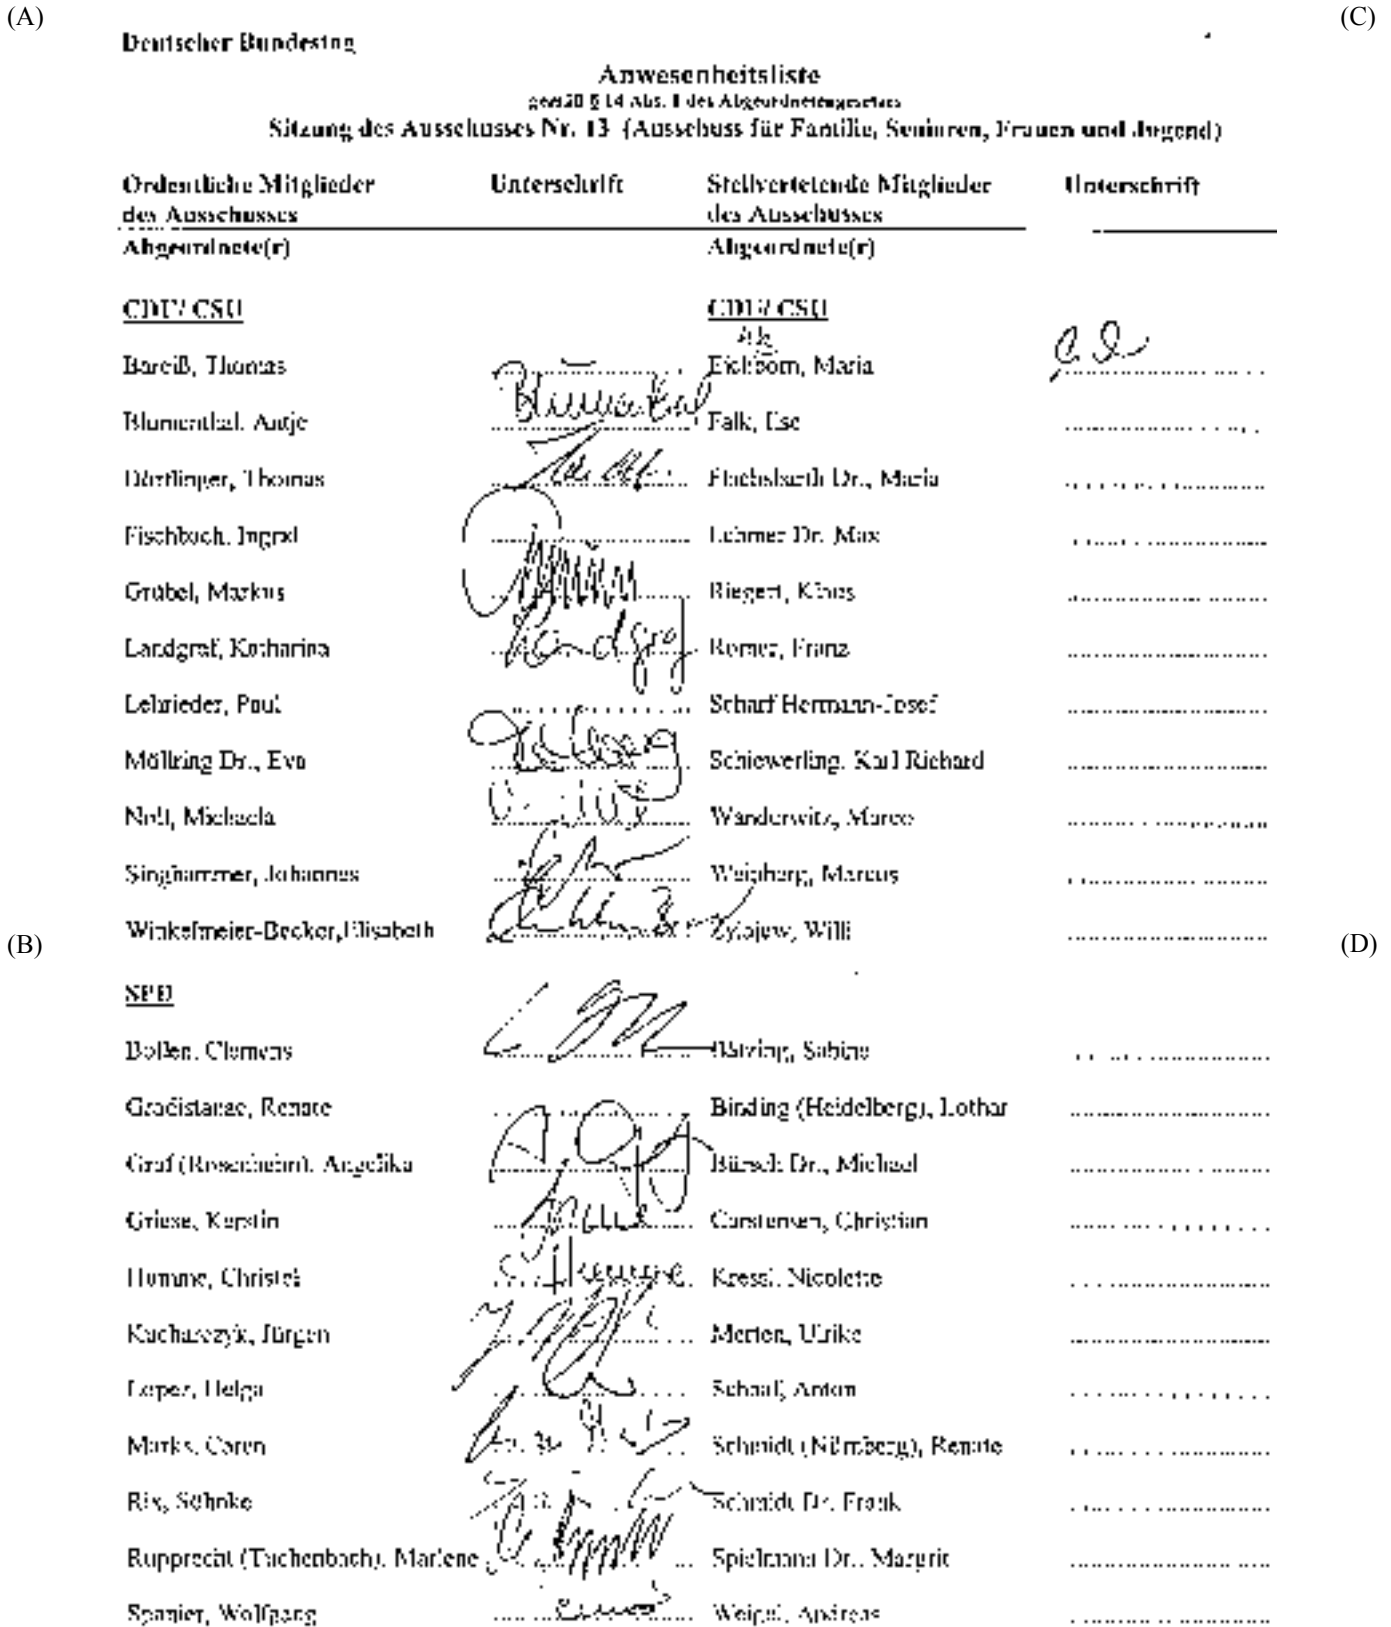 (A) (C)
Deutscher Bundestag
Anwesenheitsliste
gemäß § 14 Abs. 1 des Abgeordnetengesetzes
Sitzung des Ausschusses Nr. 13 (Ausschuss für Familie, Senioren, Frauen und Jugend)
Ordentliche Mitglieder Unterschrift Stellvertretende Mitglieder Unterschrift
des Ausschusses des Ausschusses
Abgeordnete(r) Abgeordnete(r)
CDU/ CSU CDU/ CSU
Bareiß, Thomas Eichhorn, Maria
Blumenthal, Antje Blumenthal Falk, Ilse
Dörflinger, Thomas Flachsbarth Dr., Maria
Fischbach, Ingrid Lehmer Dr. Max
Grübel, Markus Riegert, Klaus
Landgraf, Katharina Landgraf Romer, Franz
Lehrieder, Paul Scharf Hermann-Josef
Möllring Dr., Eva Schiewerling, Karl Richard
Noll, Michaela Wanderwitz, Marco
Singhammer, Johannes Weinberg, Marcus
Winkelmeier-Becker, Elisabeth Zylajew, Willi
(B) (D)
SPD
Bollen, Clemens Bätzing, Sabine
Gradistanac, Renate Binding (Heidelberg), Lothar
Graf (Rosenheim), Angelika Bürsch Dr., Michael
Griese, Kerstin Carstensen, Christian
Humme, Christel Humme Kressl, Nicolette
Kucharczyk, Jürgen Merten, Ulrike
Lopez, Helga Schaaf, Anton
Marks, Caren Schmidt (Nürnberg), Renate
Rix, Sönke Schmidt Dr. Frank
Rupprecht (Tuchenbach), Marlene Spielmann Dr., Margrit
Spanier, Wolfgang Weigel, Andreas